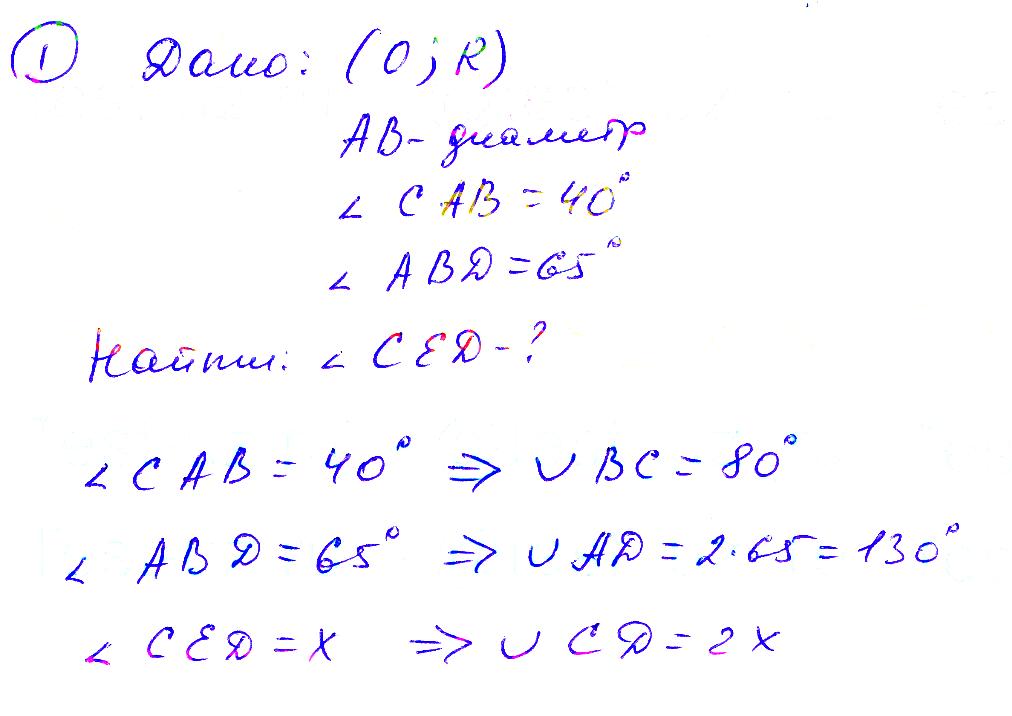 ① Дано: (O; R)
AB - диаметр
∠ CAB = 40°
∠ ABD = 65°
Найти: ∠ CED - ?
∠ CAB = 40° ⇒ ∪ BC = 80°
∠ ABD = 65° ⇒ ∪ AD = 2·65 = 130°
∠ CED = x ⇒ ∪ CD = 2x